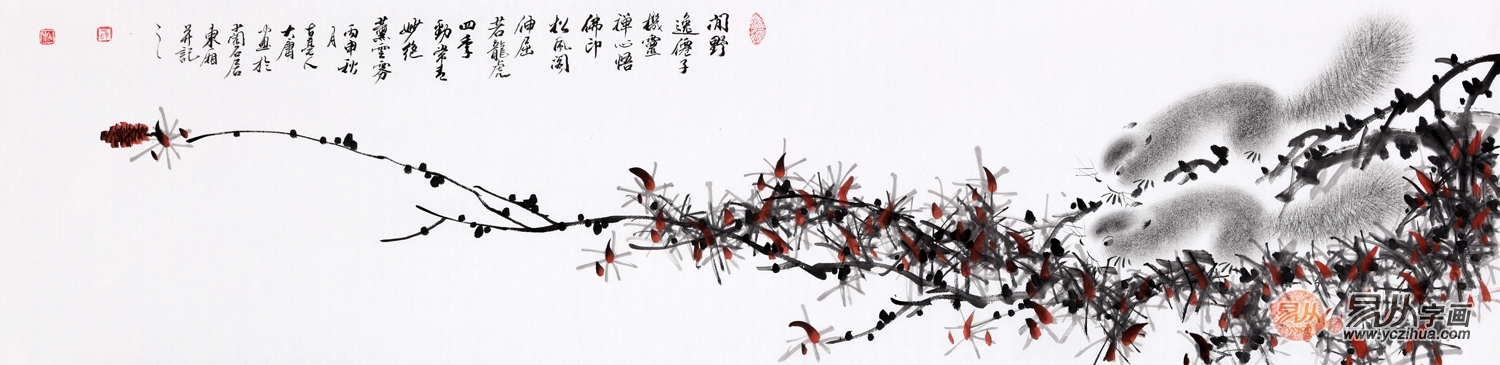 闲野
逸僊子
機靈
禅心悟
佛印
松風阁
伸屈
若龍虎
四季
勁常青
妙绝
薰雲雾
丙申秋
月
古真人
大庸
画於
尚石居
東廂
并記
之
易从字画
www.yczihua.com